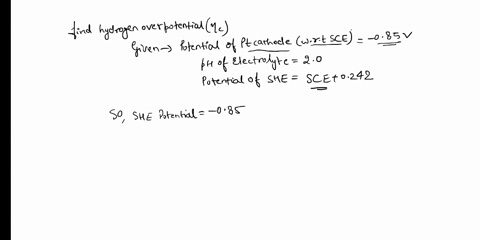 find hydrogen overpotential (ηc)
Given → Potential of Pt cathode (w.r.t SCE) = -0.85 V
pH of Electrolyte = 2.0
Potential of SHE = SCE + 0.242
SO, SHE Potential = -0.85